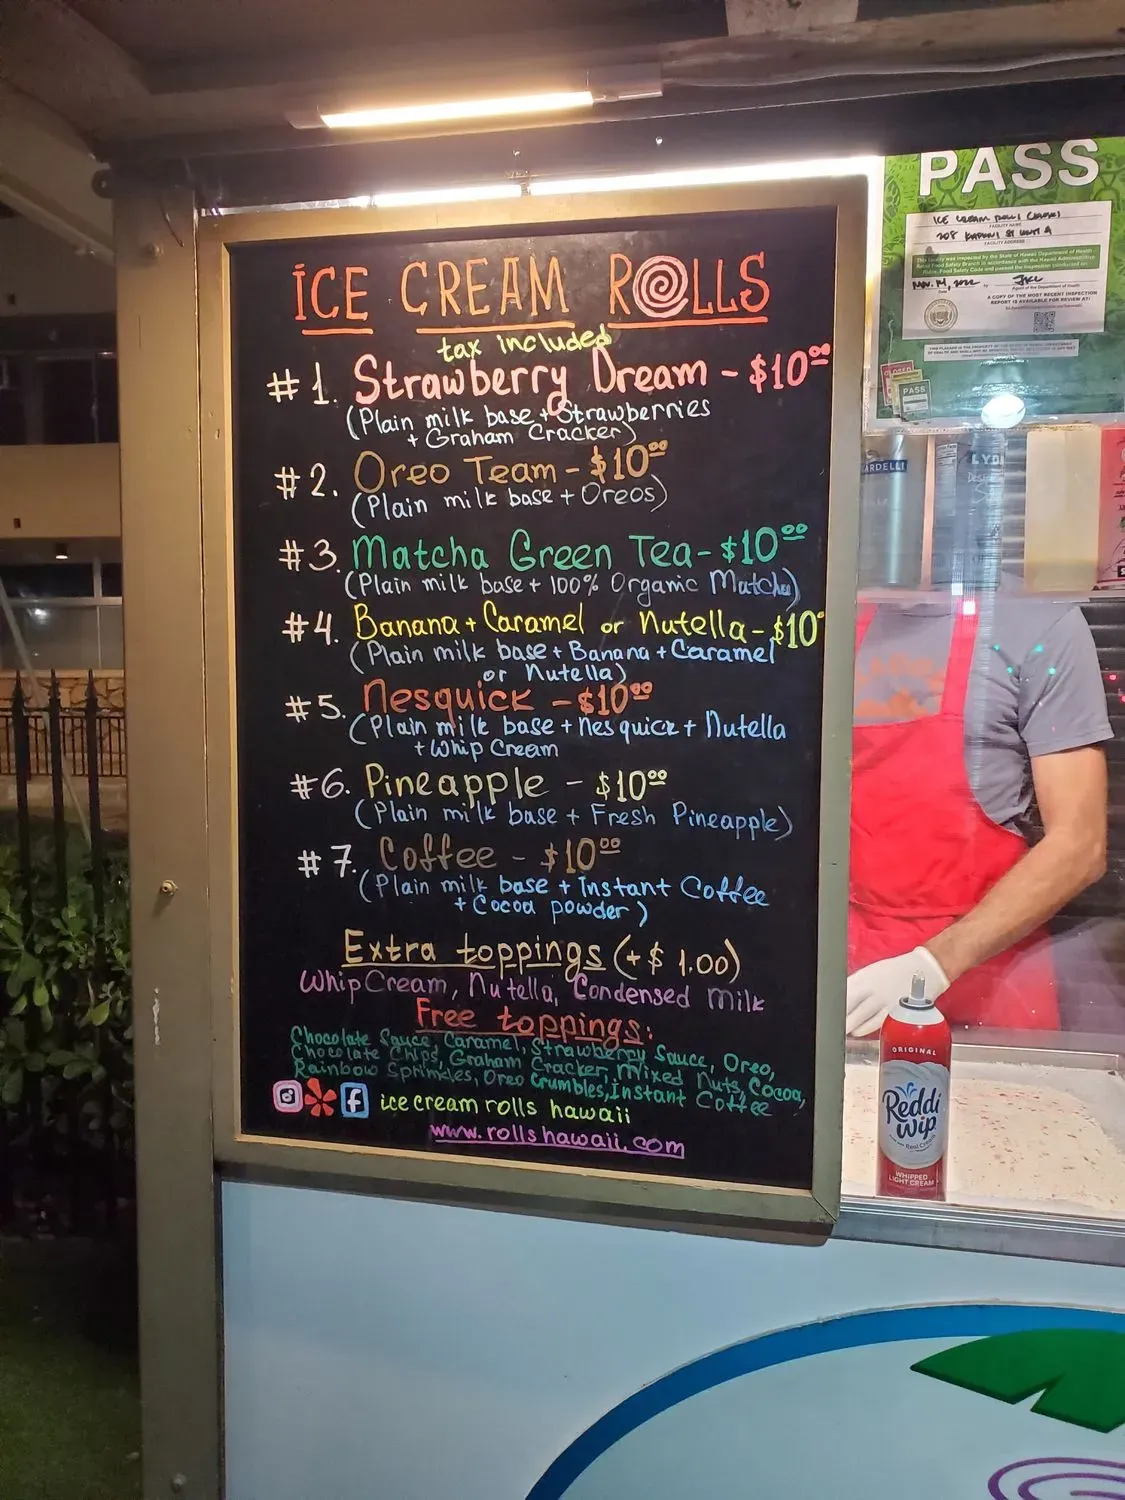 ICE CREAM ROLLS
tax included
#1. Strawberry Dream - $10⁰⁰
(Plain milk base + Strawberries
+ Graham Cracker)
#2. Oreo Team - $10⁰⁰
(Plain milk base + Oreos)
#3. Matcha Green Tea - $10⁰⁰
(Plain milk base + 100% Organic Matcha)
#4. Banana + Caramel or Nutella - $10⁰
(Plain milk base + Banana + Caramel
or Nutella)
#5. Nesquick - $10⁰⁰
(Plain milk base + Nesquick + Nutella
+ Whip Cream
#6. Pineapple - $10⁰⁰
(Plain milk base + Fresh Pineapple)
#7. Coffee - $10⁰⁰
(Plain milk base + Instant Coffee
+ Cocoa powder)
Extra toppings (+$ 1.00)
Whip Cream, Nutella, Condensed milk
Free toppings:
Chocolate Sauce, Caramel, Strawberry Sauce, Oreo,
Chocolate Chips, Graham Cracker, Mixed Nuts, Cocoa,
Rainbow Sprinkles, Oreo Crumbles, Instant Coffee
ice cream rolls hawaii
www.rollshawaii.com
PASS
FACILITY NAME
FACILITY ADDRESS
A COPY OF THE MOST RECENT INSPECTION
REPORT IS AVAILABLE FOR REVIEW AT:
PASS
ARDELLI
LYD
ORIGINAL
Reddi
wip
Real Cream
WHIPPED
LIGHT CREAM